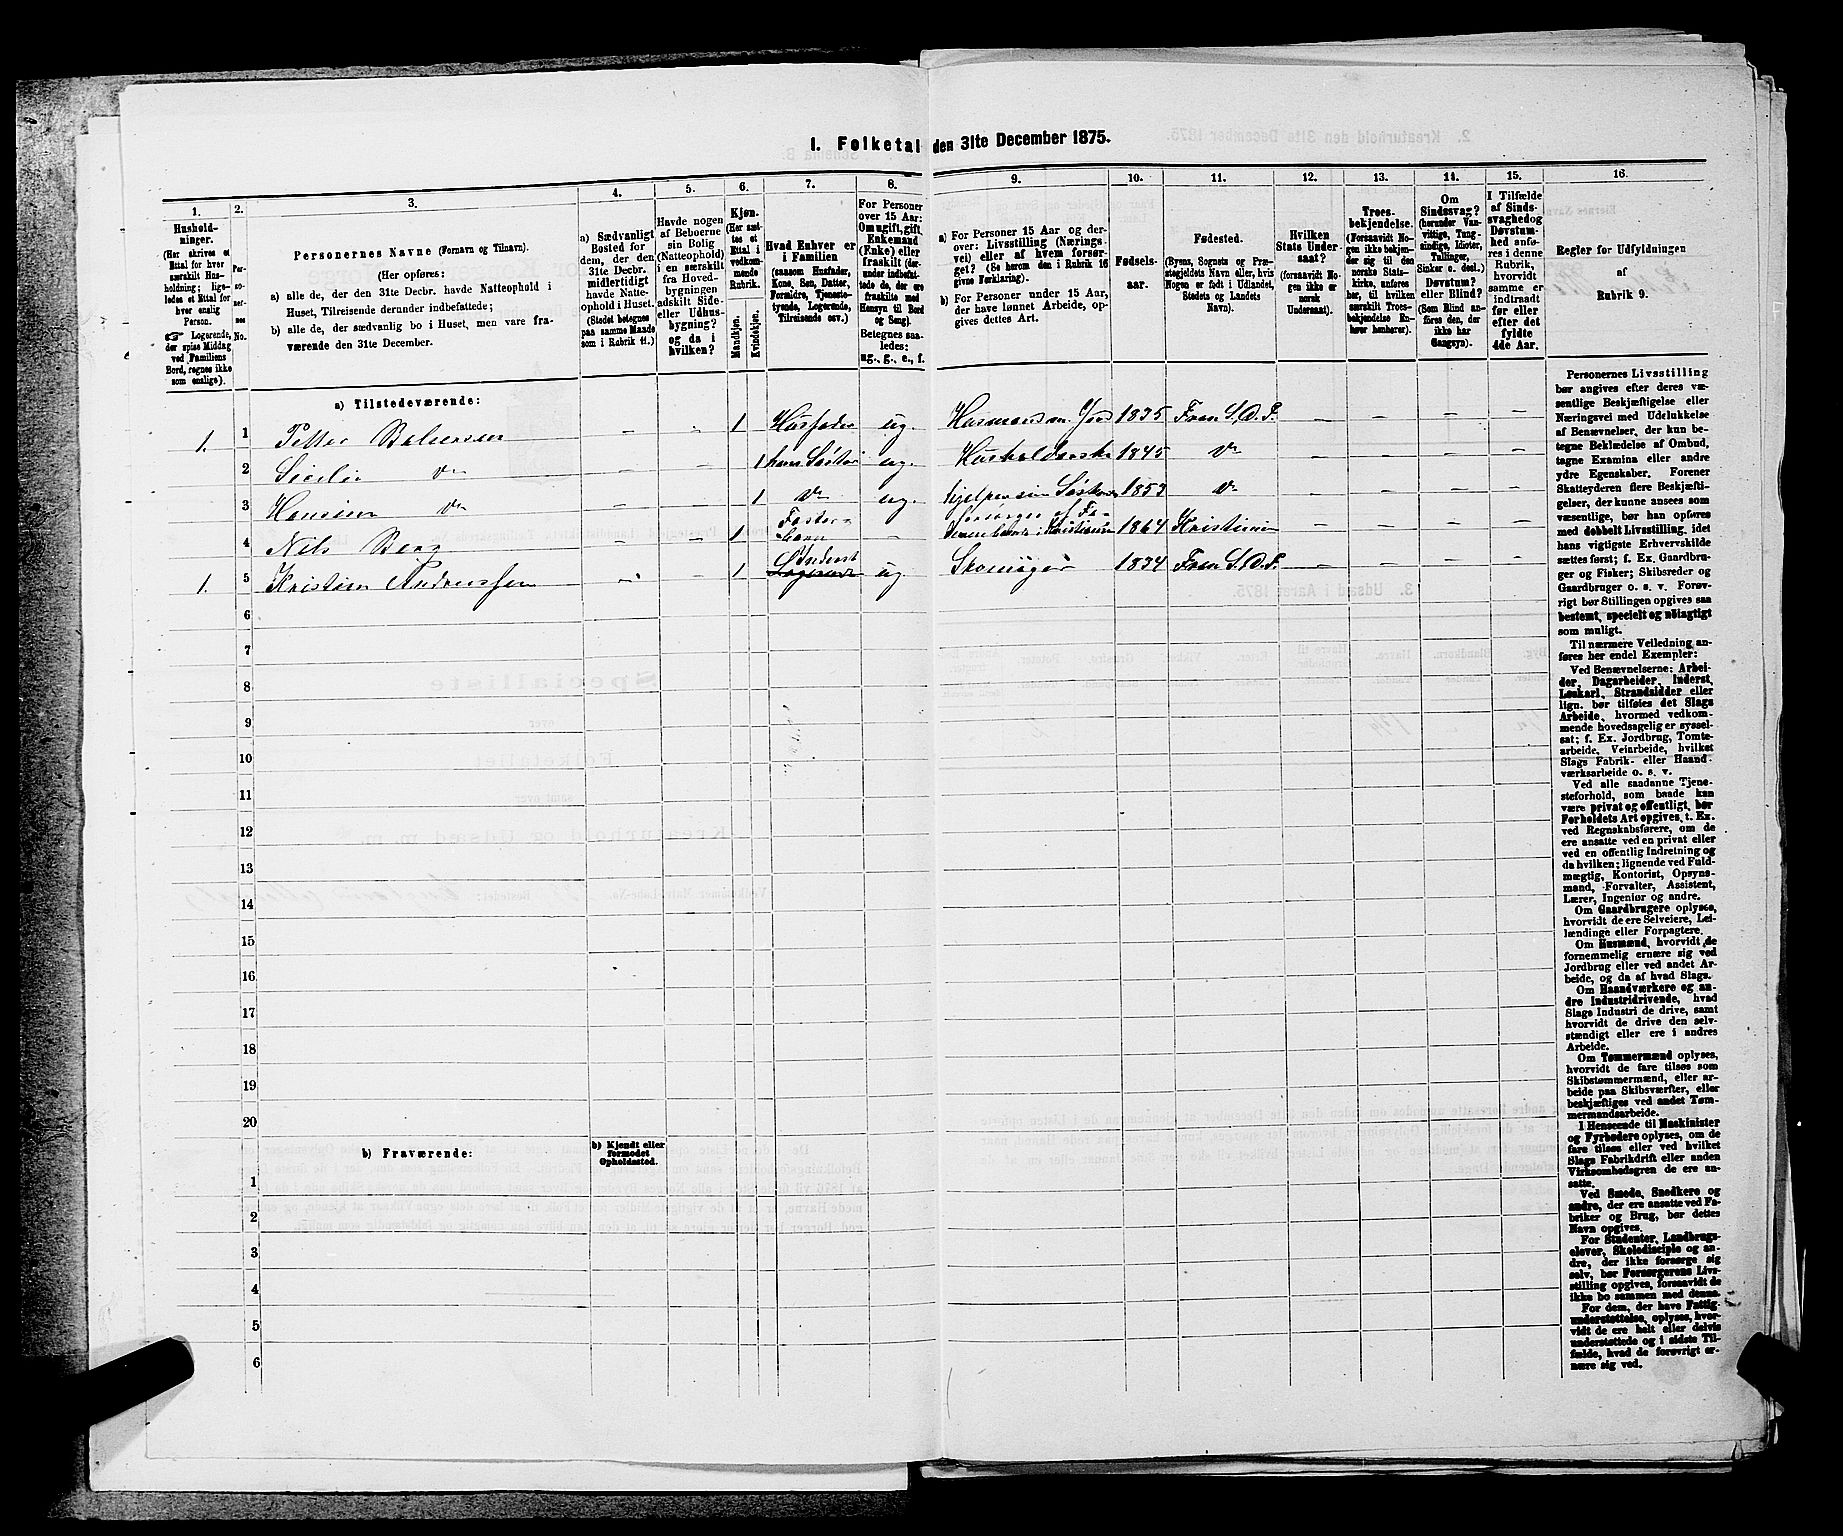 I. Folketal den 31te December 1875.
1.
2.
3.
4.
5.
6.
7.
8.
9.
10.
11.
12.
13.
14.
15.
16.
Hushold-
ninger.
(Her skrives et
Ettal for hver
særskilt Hus-
holdning; lige-
ledes et Ettal for
hver enslig
Person.
☞ Logerende,
der spise Middag
ved Familiens
Bord, regnes ikke
som enslige).
Per-
soner-
nes
No.
Personernes Navne (Fornavn og Tilnavn).
(Her opføres:
a) alle de, der den 31te Decbr. havde Natteophold i
Huset, Tilreisende derunder indbefattede;
b) alle de, der sædvanlig bo i Huset, men vare fra-
værende den 31te December.
a) Sædvanligt
Bosted for
dem, der den
31te Decbr.
midlertidigt
havde Natte-
ophold i Huset.
(Stedet betegnes
paa samme Maade
som i Rubrik 11.)
Havde nogen
af Beboerne
sin Bolig
(Natteophold)
i en særskilt
fra Hoved-
bygningen
adskilt Side-
eller Udhus-
bygning?
og da i
hvilken?
Kjøn.
(Her sæt-
tes et
Ettal i
vedkom-
mende
Rubrik.
Mandkjøn.
Kvindekjøn.
Hvad Enhver er
i Familien
(saasom Husfader,
Kone, Søn, Datter,
Forældre, Tjeneste-
tyende, Logerende,
Tilreisende osv.)
For Personer
over 15 Aar:
Om ugift, gift,
Enkemand
(Enke) eller
fraskilt (der-
under indbefat-
tede de, der ere
fraskilte med
Hensyn til Bord
og Seng).
Betegnes saa-
ledes:
ug., g., e., f.
a) For Personer 15 Aar og der-
over: Livsstilling (Nærings-
vei) eller af hvem forsør-
get? (Se herom den i Rubrik 16
givne Forklaring).
b) For Personer under 15 Aar,
der have lønnet Arbeide, op-
gives dettes Art.
Fødsels-
aar.
Fødested.
(Byens, Sognets og Præ-
stegjeldets Navn eller, hvis
Nogen er født i Udlandet,
Stedets og Landets
Navn).
Hvilken
Stats Under-
saat?
(forsaavidt No-
gen ikke er
norsk
Undersaat).
Troes-
bekjendelse.
(Forsaavidt No-
gen ikke bekjen-
der sig til den
norske Stats-
kirke, anføres
her, til hvilken
særskilt Troes-
bekjendelse En-
hver henhører).
Om
Sindssvag?
(herunder Van-
vittige, Tung-
sindige, Idioter,
Tullinger,
Sinker o. desl.)
Døvstum?
eller Blind?
(Som Blind an-
føres den, der
ikke har
Gangsyn).
I Tilfælde
af Sinds-
svaghed og
Døvstum-
hed anfø-
res i denne
Rubrik,
hvorvidt
samme er
indtraadt
før eller
efter det
fyldte
4de Aar.
Regler for Udfyldningen
af
Rubrik 9.
a) Tilstedeværende:
1. 1 Petter – – 1 Husfader ug. 1835 Fron S.D.P. – – – –
2 – – 1 hans Søster ug. Husholderske 1845 – – – –
3 – – 1 ug. hjelper sin 1853 – – – –
4 Nils Berg – – 1 Foster-
barn – 1864 – – – –
1. 5 – – 1 Inderst
Logerende ug. Skomager 1834 Fron S.D.P. – – – –
6
7
8
9
10
11
12
13
14
15
16
17
18
19
20
b) Fraværende:
b) Kjendt eller
formodet
Opholdssted.
1
2
3
4
5
6
Personernes Livsstilling
bør angives efter deres væ-
sentlige Beskjæftigelse eller
Næringsvei med Udelukkelse
af Benævnelser, der kun be-
tegne Beklædelse af Ombud,
tagne Examina eller andre
ydre Egenskaber. Forener
Skatteyderen flere Beskjæfti-
gelser, der kunne ansees som
væsentlige, bør han opføres
med dobbelt Livsstilling, idet
hans vigtigste Erhvervskilde
sættes først; f. Ex. Gaardbru-
ger og Fisker; Skibsreder og
Gaardbruger o. s. v. Forøv-
rigt bør Stillingen opgives saa
bestemt, specielt og nöiagtigt
som muligt.
Til nærmere Veiledning an-
føres her endel Exempler:
Ved Benævnelserne: Arbei-
der, Dagarbeider, Inderst,
Løskarl, Strandsidder eller
lign. bør tilføies det Slags
Arbeide, hvormed vedkom-
mende hovedsagelig er syssel-
sat; f. Ex. Jordbrug, Tomte-
arbeide, Veiarbeide, hvilket
Slags Fabrik- eller Haand-
værksarbeide o. s. v.
Ved alle saadanne Tjene-
steforhold, som baade kan
være privat og offentligt, bør
Forholdets Art opgives, t. Ex.
ved Regnskabsførere, om de
ere ansatte ved en privat eller
ved en offentlig Indretning og
da hvilken; lignende ved Fuld-
mægtig, Kontorist, Opsyns-
mand, Forvalter, Assistent,
Lærer, Ingeniør og andre.
Om Gaardbrugere oplyses,
hvorvidt de ere Selveiere, Lei-
lændinge eller Forpagtere.
Om Husmænd, hvorvidt de
fornemmelig ernære sig ved
Jordbrug eller ved andet Ar-
beide, og da af hvad Slags.
Om Haandværkere og an-
dre Industridrivende, hvad
Slags Industri de drive, samt
hvorvidt de drive den selv-
stændigt eller ere i andres
Arbeide.
Om Tømmermænd oplyses,
hvorvidt de fare tilsøs som
Skibstømmermænd, eller ar-
beide paa Skibsværfter, eller
beskjæftiges ved andet Tøm-
mermandsarbeide.
I Henseende til Maskinister
og Fyrbødere oplyses, om de
fare tilsøs eller ved hvilket
Slags Fabrikdrift eller anden
Virksomhedsgren de ere an-
satte.
Ved Smede, Snedkere og
andre, der ere ansatte ved Fa-
briker og Brug, bør dettes
Navn opgives.
For Studenter, Landbrugs-
elever, Skoledisciple og an-
dre, der ikke forsørge sig
selv, bør Forsørgerens Livs-
stilling opgives, forsaavidt de
ikke bo sammen med denne.
For dem, der have Fattig-
understøttelse, oplyses, hvor-
vidt de ere helt eller delvis
understøttede og i sidste Til-
fælde, hvad de forøvrigt er-
nære sig ved.